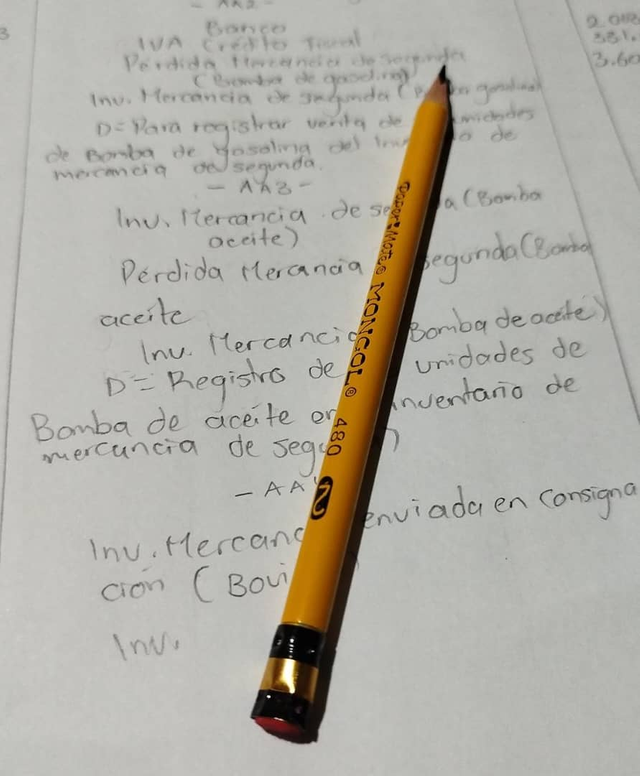 - AA2 -
Banco
IVA Crédito Fiscal
Pérdida Mercancía de segunda
(Bomba de gasolina)
Inv. Mercancía de segunda ( gasolina)
D= Para registrar venta de unidades
de Bomba de gasolina del de
mercancía de segunda.
- AA3 -
Inv. Mercancía de se a (Bomba
aceite)
Pérdida Mercancia segunda (Bomba
aceite
Inv. Mercancia Bomba de aceite)
D= Registro de unidades de
Bomba de aceite en inventario de
mercancia de seg )
- AA
Inv. Mercanc enviada en consigna
ción (Bovi
Inv.
3
2.0
3.60
Paper Mate® MONGOL® 480 2